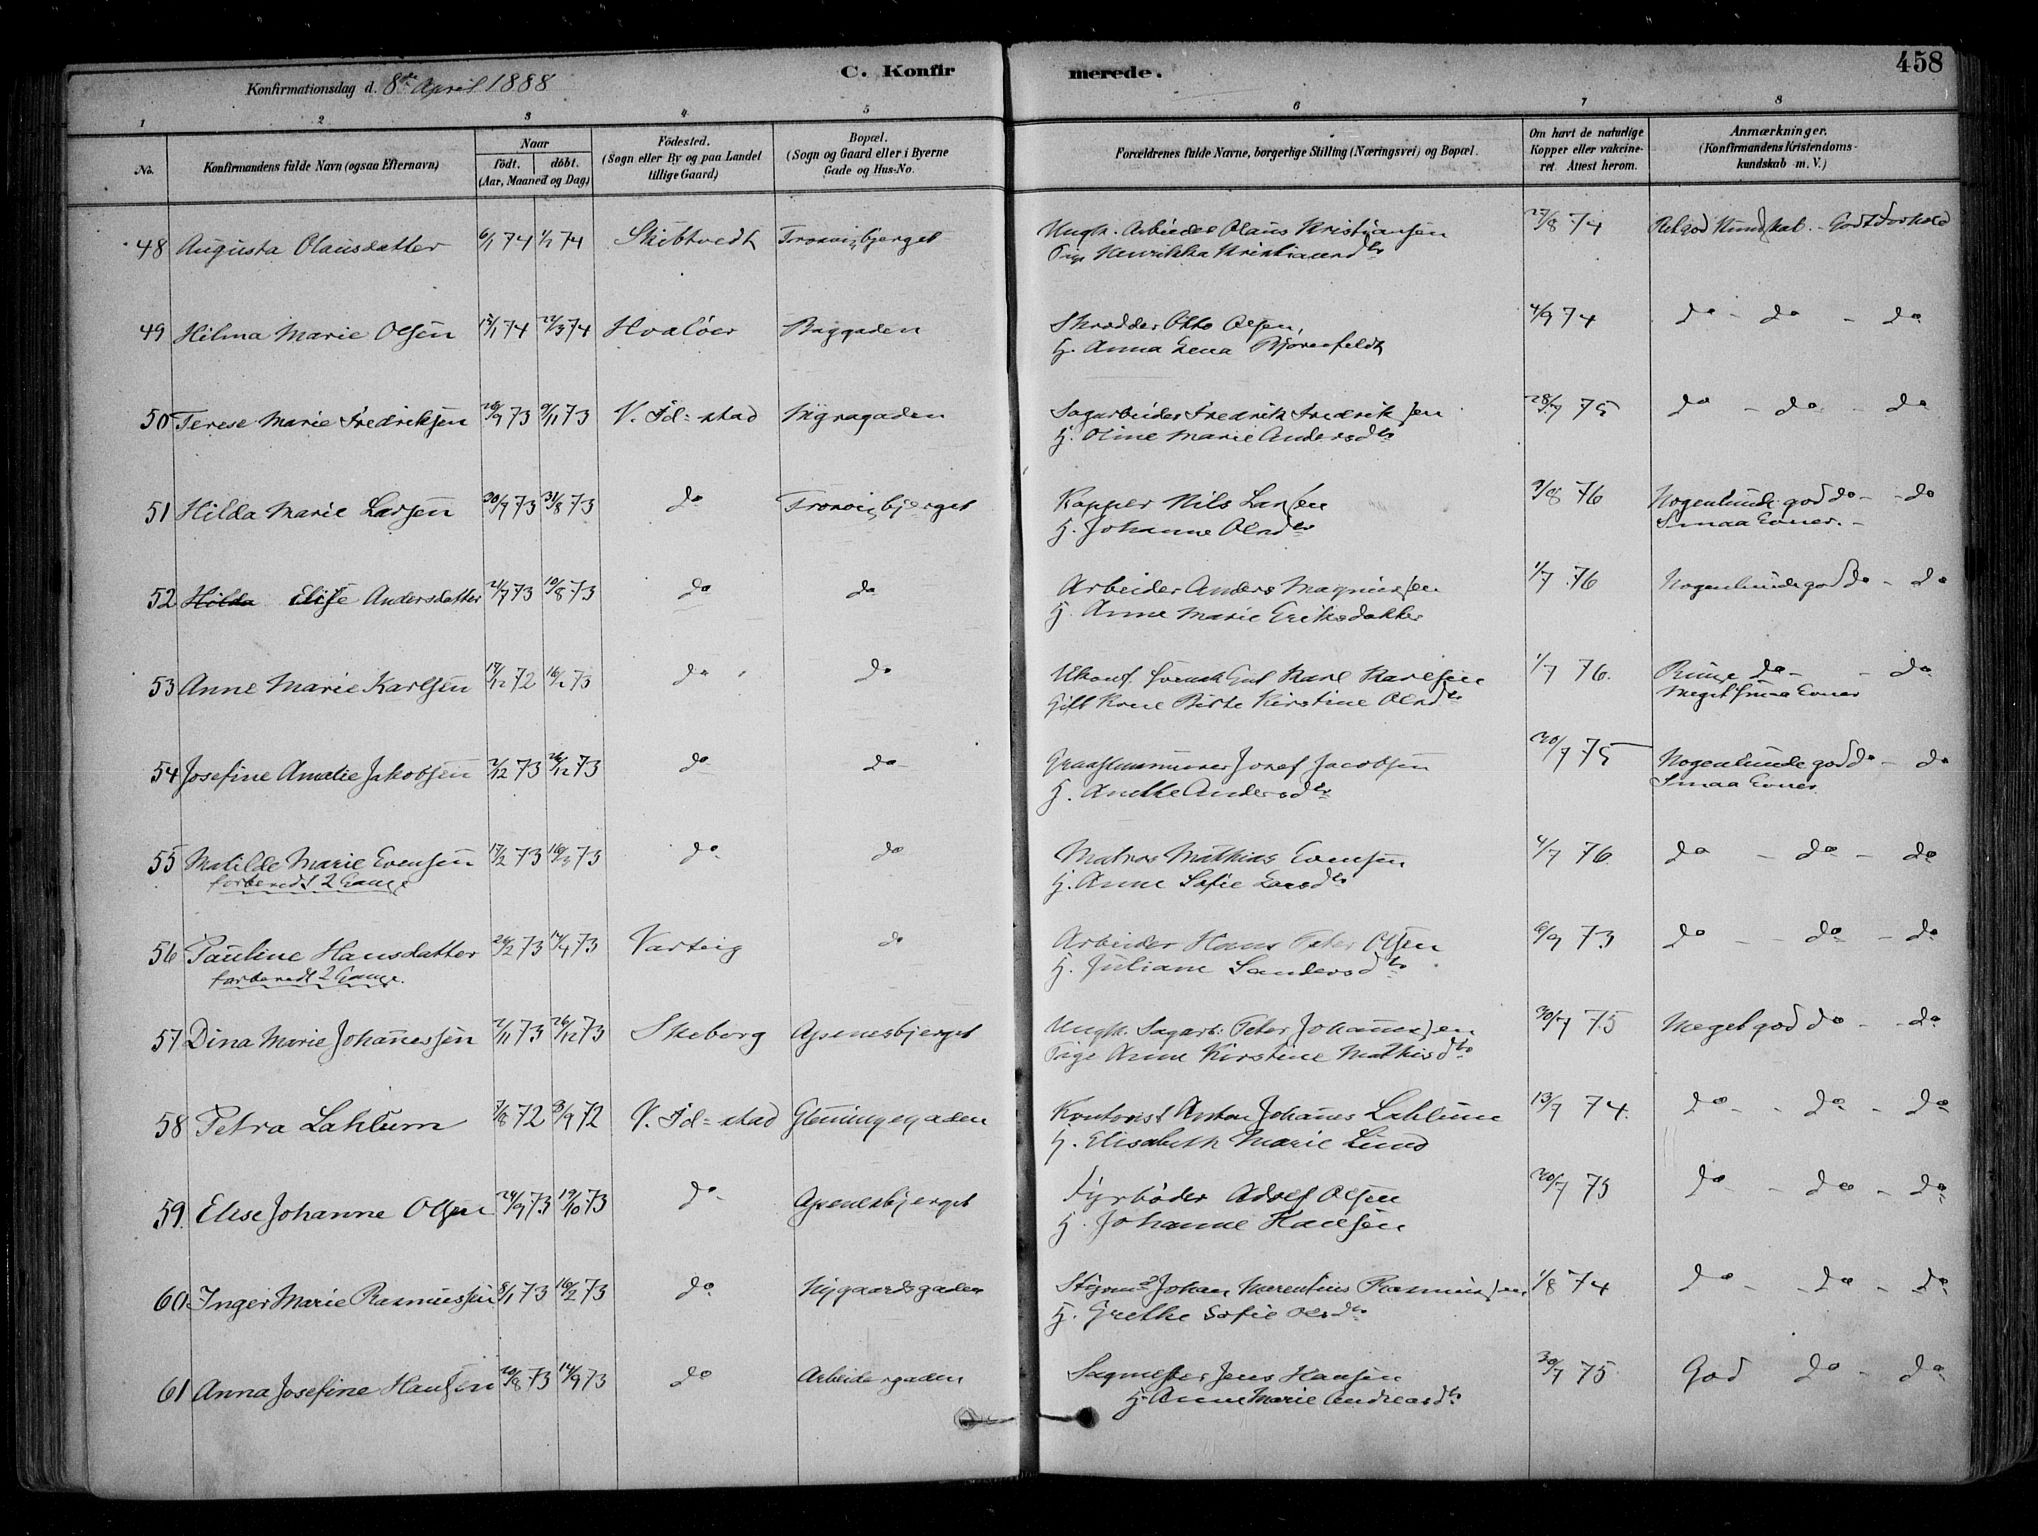 458
C. Konfirmerede.
Konfirmationsdag d. 8de April 1888
1 2 3 4 5 6 7 8
No.
Konfirmandens fulde Navn (ogsaa Efternavn)
Naar
födt. döbt.
(Aar, Maaned og Dag)
Födested.
(Sogn eller By og paa Landet
tillige Gaard)
Bopæl.
(Sogn og Gaard eller i Byerne
Gade og Hus-No.
Forældrenes fulde Navne, borgerlige Stilling (Næringsvei) og Bopæl.
Om havt de naturlige
Kopper eller vakcine-
ret. Attest herom.
Anmærkninger.
(Konfirmandens Kristendoms-
kundskab m. V.)
48 Augusta Olausdatter 6/1 74 1/1 74 Skibtvedt Trosvigbjerget Ungk. Arbeider Olaus Kristiansen 27/8 74 Ret god Kundskab. - Godt Forhold
Pige Henrikka Kristiansdtr
49 Hilma Marie Olsen 13/1 74 22/3 74 Hvaløer Baggaden Skrædder Otto Olsen, 4/9 74 do - do - do
H. Anna Lena Bjørnfeldt
50 Terese Marie Fredriksen 28/9 73 9/11 73 V. Fd=stad Nygagaden Sagarbeider Fredrik Fredriksen 28/7 75 do - do - do
H. Oline Marie Andersdtr
51 Hilda Marie Larsen 30/7 73 31/8 73 do Trosvigbjerget Kopper Nils Larsen 9/8 76 Nogenlunde god do - - do
H. Johanne Olsdtr Smaa Evner. -
52 Hilda Elise Andersdatter 21/7 73 10/8 73 do do Arbeider Anders Magnussen 1/7 76 Nogenlunde god do - do
H. Anne Marie Eriksdatter
53 Anne Marie Karlsen 17/12 72 16/2 73 do do Ukonf. svensk Karl Karlsen 1/7 76. do - - do
Gift Kone Birte Kirstine Olsdtr Meget smaa Evner
54 Josefine Amalie Jakobsen 2/12 73 26/12 73 do do Josef Jacobsen 30/7 75 Nogenlunde god do - do
H. Anette Andersdtr Smaa Evner.
55 Matilde Marie Evensen 17/2 73 16/3 73 do do Matros Mathias Evensen 4/7 76 do - do - do
forberedt 2 Gange H. Anne Sofie Larsdtr
56 Pauline Hansdatter 24/2 73 14/4 73 Varteig do Arbeider Hans Peter Olsen 6/9 73 do - - do - do
forberedt 2 Gange. H. Juliane Sandersdtr
57 Dina Marie Johannessen 2/11 73 26/12 73 Skeberg Apenesbjerget Ungk. Sagarb. Peter Johannessen 30/7 75 Meget god do - - do
Pige Anne Kirstine Mathisdtr
58 Petra Lahlum 7/8 72 8/9 72 V. Fd=stad Glemmingegaden Kontorist Anton Johannes Lahlum 13/7 74. do - - do - do
H. Elisabeth Marie Lund
59. Elise Johanne Olsen 24/9 73 19/10 73 do Apenesbjerget Fyrbøder Adolf Olsen 20/7 75 do - do - do
H. Johanne Hansen
60 Inger Marie Rasmussen 8/1 73 16/2 73 do Nygaardsgaden Styrmd Johan Marentius Rasmussen 1/8 74 do - - do - do
H. Grethe Sofie Olsdtr
61 Anna Josefine Hansen 20/8 73 14/9 73 do Arbeidergaden Sagmester Jens Hansen 30/7 75. God do - do
H. Anne Marie Andreasdtr